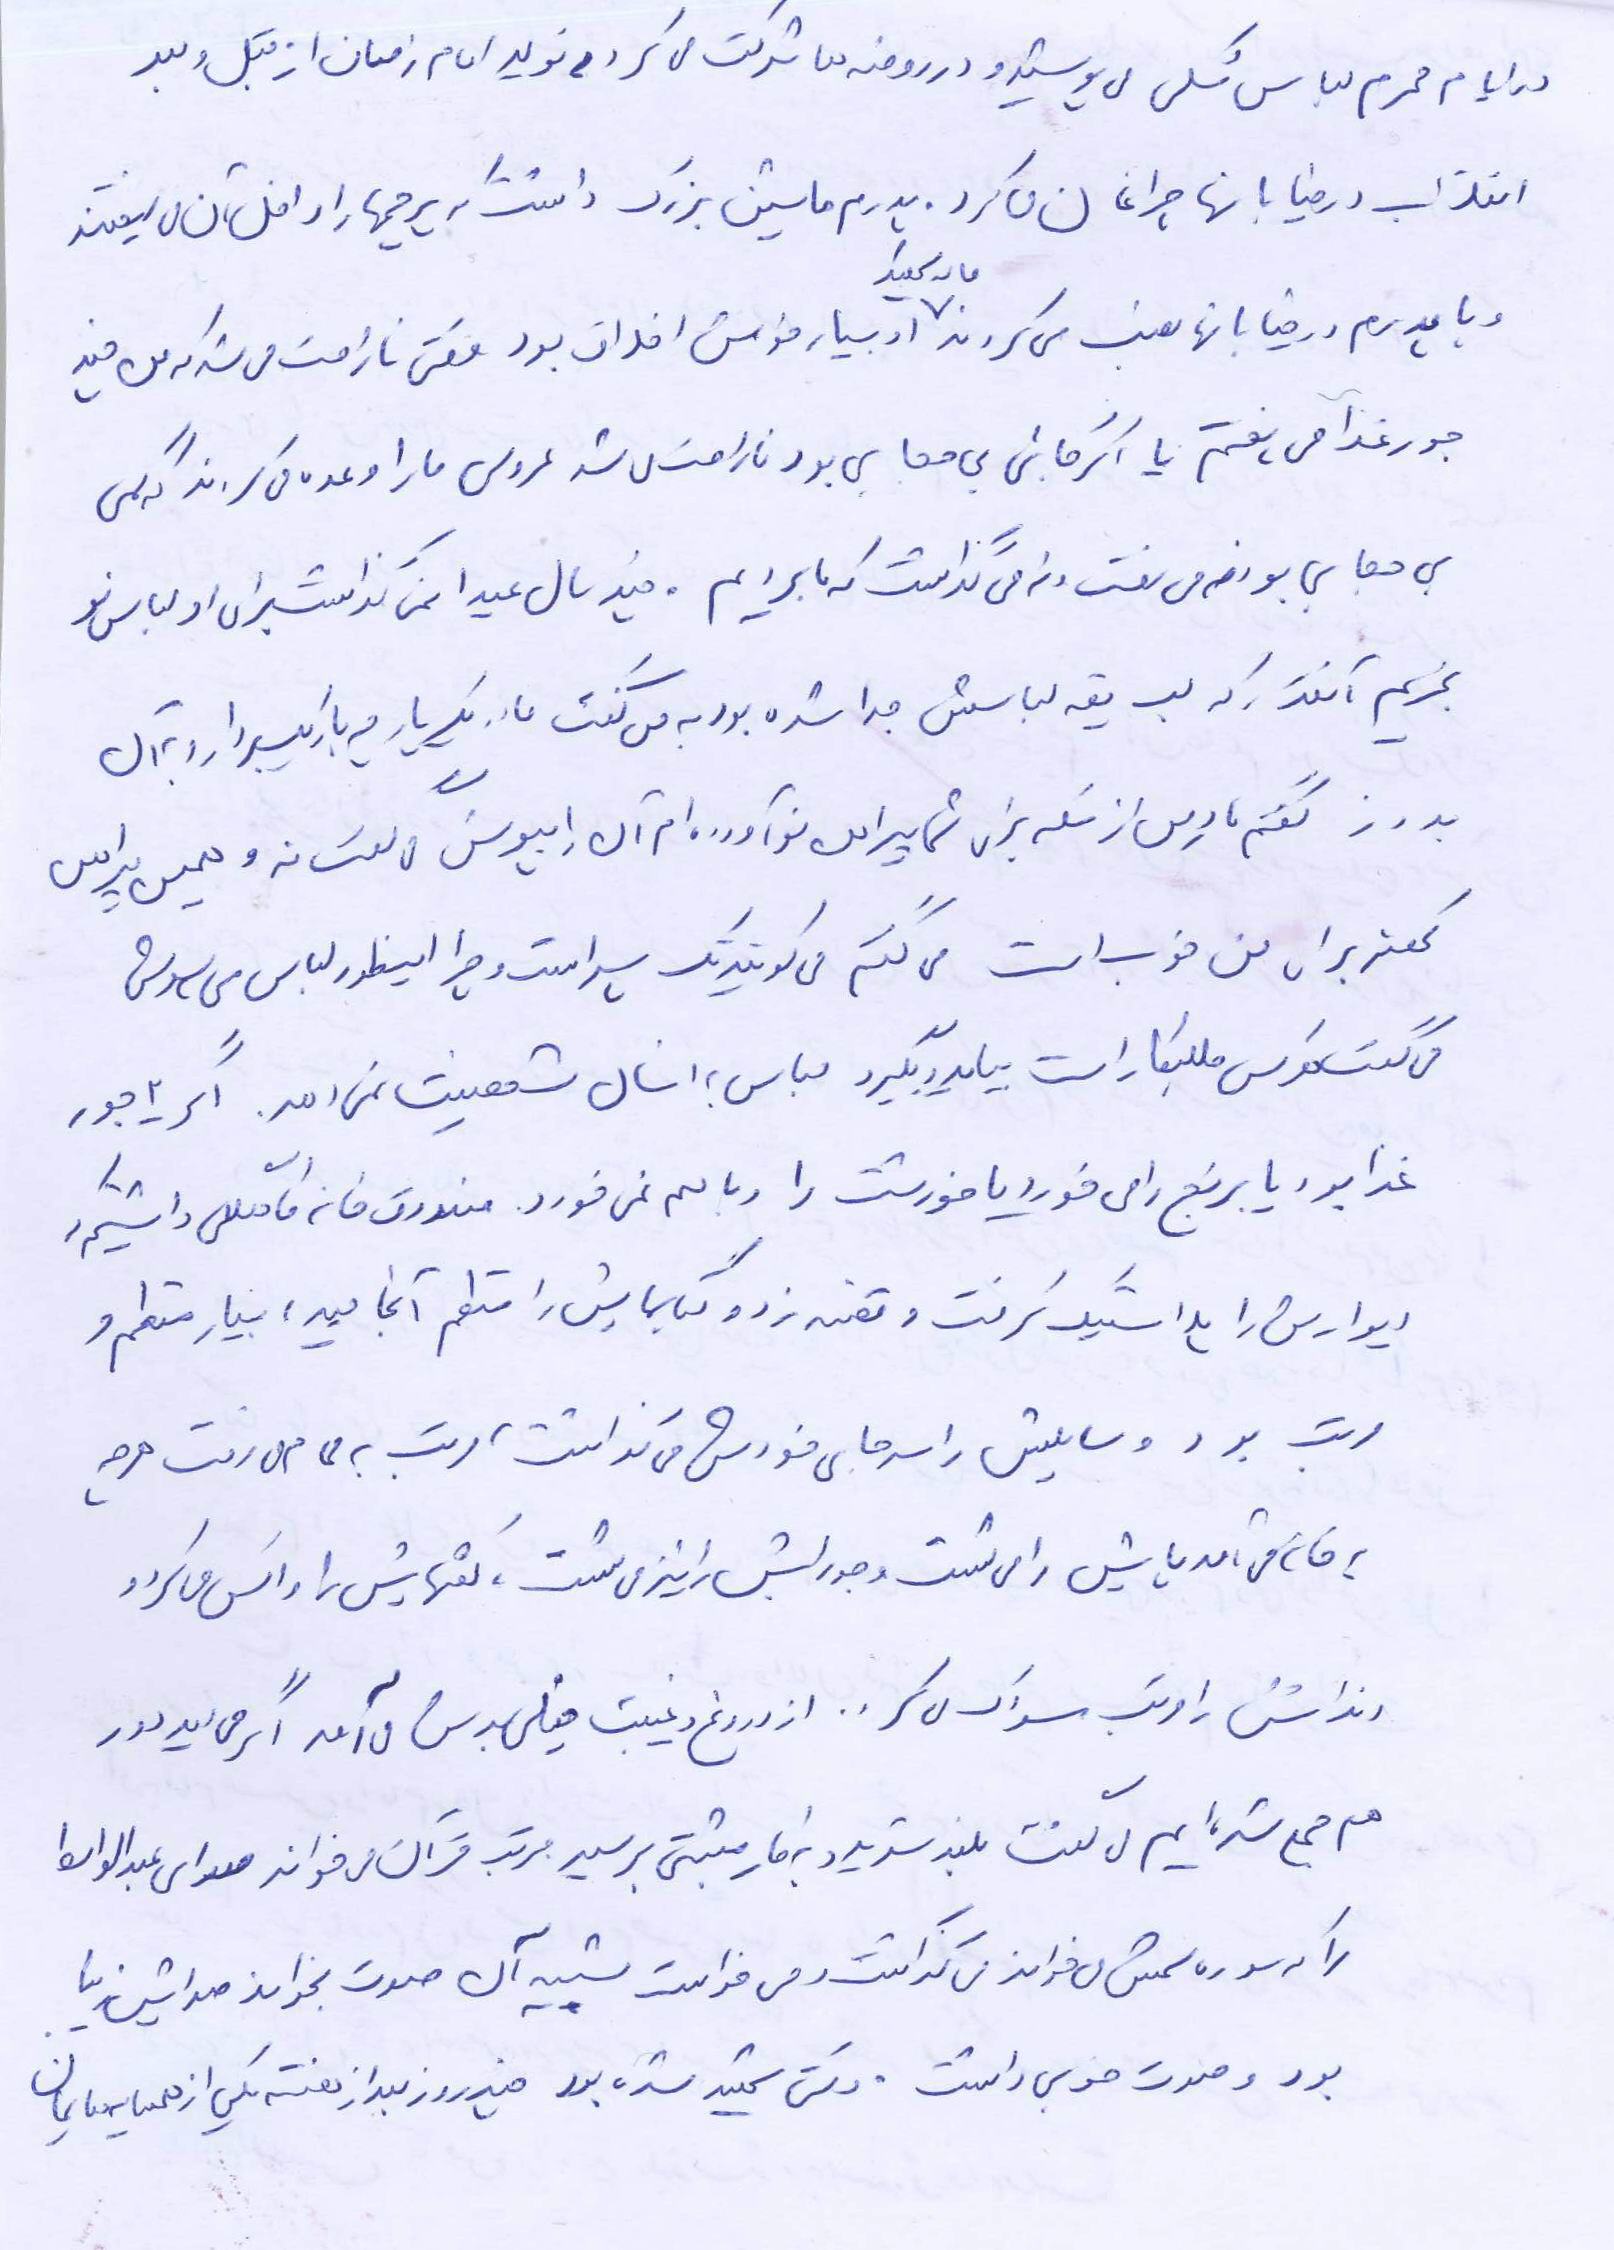 در ایام محرم لباس مشکی می پوشید و در روضه ها شرکت می کرد تولد امام زمان از قبل و بعد
انقلاب در خیابانها چراغان می کرد. پدرم ماشین بزرگ داشت که پرچمها را داخل آن می ریختند
و با پدرم در خیابانها نصب می کردند او بسیار خوش اخلاق بود وقتی ناراحت می شد که من چند
جور غذا می پختم یا اگر جائی بی حجابی بود ناراحت می شد عروسی ما را وعده می کردند که کمی
بی حجابی بود نمی رفت و نمی گذاشت که ما برویم. چند سال عید نمی گذاشت برای او لباس نو
بخریم آنقدر که لب یقه لباسش جدا شده بود به من گفت مادر یک پارچه باریک بردار و به آن
بدوز گفتم مادر من از مکه برای شما پیراهن نو آورده ام آن را بپوش می گفت نه و همین پیراهن
کهنه برای من خوب است می گفتم می گویند پسر است و چرا اینطور لباس می پوشی
می گفت هر کس طلبکار است بیاید و بگیرد لباس به انسان شخصیت نمی دهد. اگر ۲ جور
غذا بود یا برنج را می خورد یا خورشت را و با هم نمی خورد. صندوق خانه کاهگلی داشتیم و
دیوارش را پلاستیک گرفت و تخته زد و کتابهایش را منظم آنجا چید، بسیار منظم و
مرتب بود وسایلش را سر جای خودش می گذاشت، مرتب به حمام می رفت هر چه
به خانه می آمد پایش را می شست و جورابش را نیز می شست، کفشهایش را واکس می کرد و
دندانش را مرتب مسواک می کرد. از دروغ و غیبت خیلی بدش می آمد اگر می دید دور
هم جمع شده ایم می گفت بلند شوید و به کار مثبتی برسید مرتب قرآن می خواند صدای عبدالباسط
را که سوره شمس می خواند می گذاشت و می خواست شبیه آن صوت بخواند صدایش زیبا
بود و صوت خوبی داشت. وقتی شهید شده بود چند روز بعد از هفته یکی از همسایه هایمان